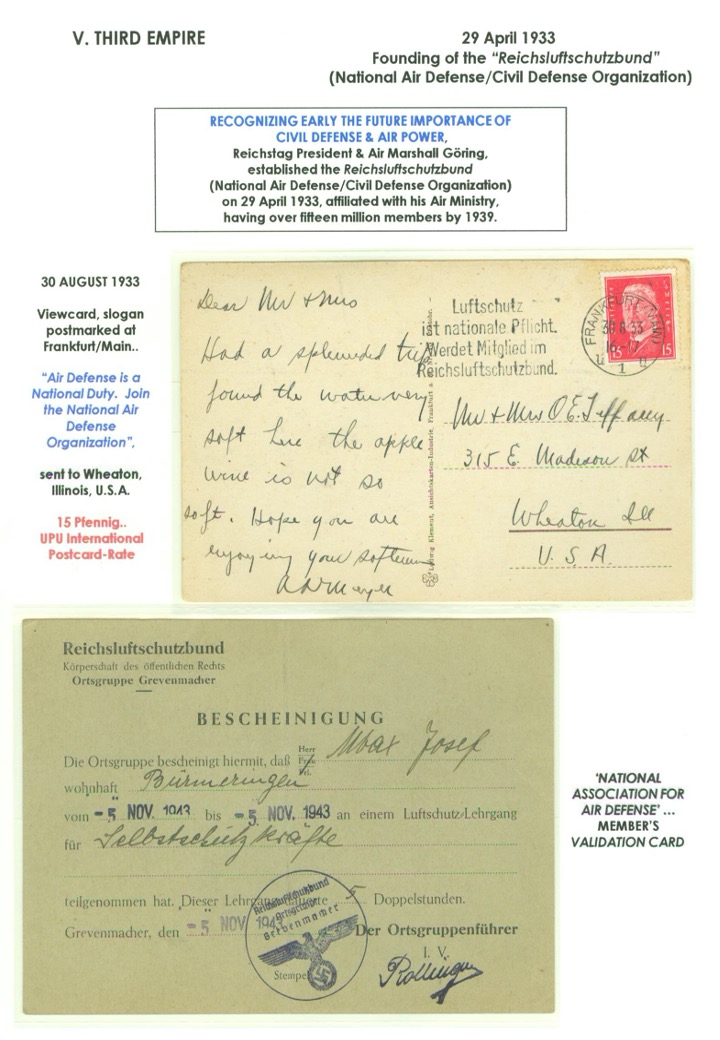 V. THIRD EMPIRE
29 April 1933
Founding of the “Reichsluftschutzbund”
(National Air Defense/Civil Defense Organization)
RECOGNIZING EARLY THE FUTURE IMPORTANCE OF
CIVIL DEFENSE & AIR POWER,
Reichstag President & Air Marshall Göring,
established the Reichsluftschutzbund
(National Air Defense/Civil Defense Organization)
on 29 April 1933, affiliated with his Air Ministry,
having over fifteen million members by 1939.
30 AUGUST 1933
Viewcard, slogan
postmarked at
Frankfurt/Main..
“Air Defense is a
National Duty. Join
the National Air
Defense
Organization”,
sent to Wheaton,
Illinois, U.S.A.
15 Pfennig..
UPU International
Postcard-Rate
Dear Mr + Mrs
Had a splended trip
found the water very
soft here the apple
wine is not so
soft. Hope you are
enjoying your
Luftschutz
ist nationale Pflicht.
Werdet Mitglied im
Reichsluftschutzbund.
FRANKFURT (MAIN)
30.8.33
16-17
1
15 15
Ludwig Klement, Ansichtskarten-Industrie, Frankfurt a
Mr + Mrs O E. Tiffany
315 E. Madison St
Wheaton Ill
U.S.A.
Reichsluftschutzbund
Körperschaft des öffentlichen Rechts
Ortsgruppe Grevenmacher
BESCHEINIGUNG
Die Ortsgruppe bescheinigt hiermit, daß Herr Frau Frl. Max Josef
wohnhaft Bürmeringen
vom - 5. NOV. 1943 bis - 5. NOV. 1943 an einem Luftschutz-Lehrgang
für Selbstschutzkräfte
teilgenommen hat. Dieser Lehrgang 5 Doppelstunden.
Grevenmacher, den - 5. NOV. 1943
Reichsluftschutzbund
Ortsgruppe
Grevenmacher
Stempel
Der Ortsgruppenführer
I. V.
‘NATIONAL
ASSOCIATION FOR
AIR DEFENSE’ ...
MEMBER’S
VALIDATION CARD